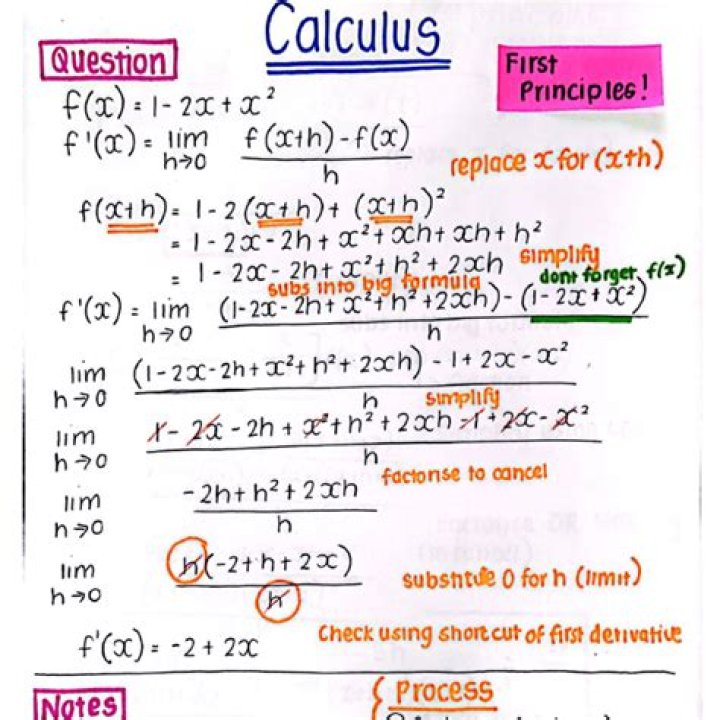 Calculus
Question
First
Principles!
f(x) = 1 - 2x + x²
f'(x) = lim h→0 (f(x+h) - f(x)) / h
replace x for (x+h)
f(x+h) = 1 - 2(x+h) + (x+h)²
= 1 - 2x - 2h + x² + xh + xh + h²
= 1 - 2x - 2h + x² + h² + 2xh simplify
subs into big formula
dont forget f(x)
f'(x) = lim h→0 ((1-2x-2h+x²+h²+2xh) - (1-2x+x²)) / h
lim h→0 ((1-2x-2h+x²+h²+2xh) - 1 + 2x - x²) / h
simplify
lim h→0 (1 - 2x - 2h + x² + h² + 2xh - 1 + 2x - x²) / h
factorise to cancel
lim h→0 (-2h + h² + 2xh) / h
lim h→0 h(-2 + h + 2x) / h
substitute 0 for h (limit)
f'(x) = -2 + 2x
Check using shortcut of first derivative
Notes
{ PROCESS